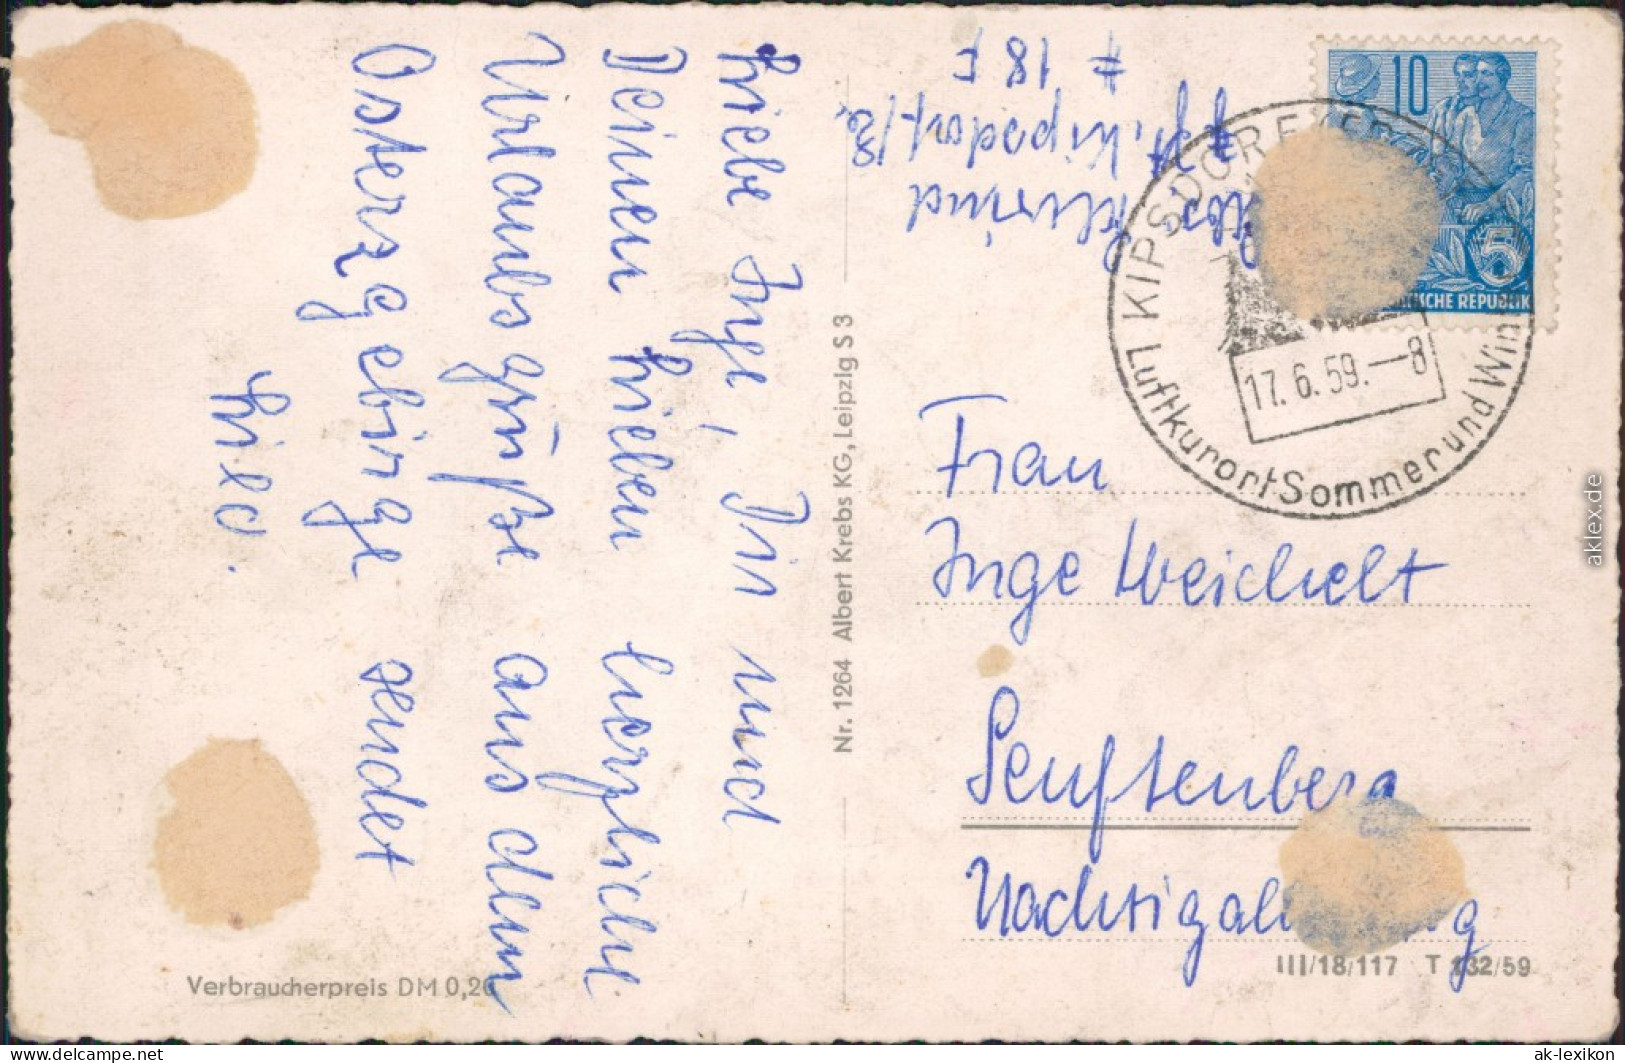 Liebe Inge, Dir und
Deinen Lieben herzliche
Urlaubsgrüße aus dem
Osterzgebirge sendet
Hild.
Verbraucherpreis DM 0,20
Nr. 1264 Albert Krebs KG, Leipzig S 3
Kipsdorf
# 18 F
10
5
ISCHE REPUBLIK
KIPSDORF
17.6.59.-8
Luftkurort Sommer und Win
Frau
Inge Weichelt
Senftenberg
III/18/117 T 132/59
aklex.de
delcampe.net
ak-lexikon